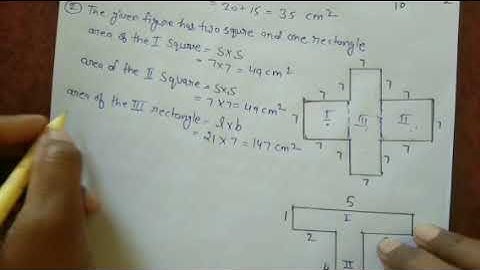 = 20+15 = 35 cm²
10
② The given figure has two squre and one rectangle
area of the I Square = S×S
= 7×7 = 49 cm²
area of the II Square = S×S
= 7×7 = 49 cm²
area of the III rectangle = l×b
= 21×7 = 147 cm²
7
7 7
7 7
7 I III II 7
7 7
7 7
7
5
1 I
2
4 II